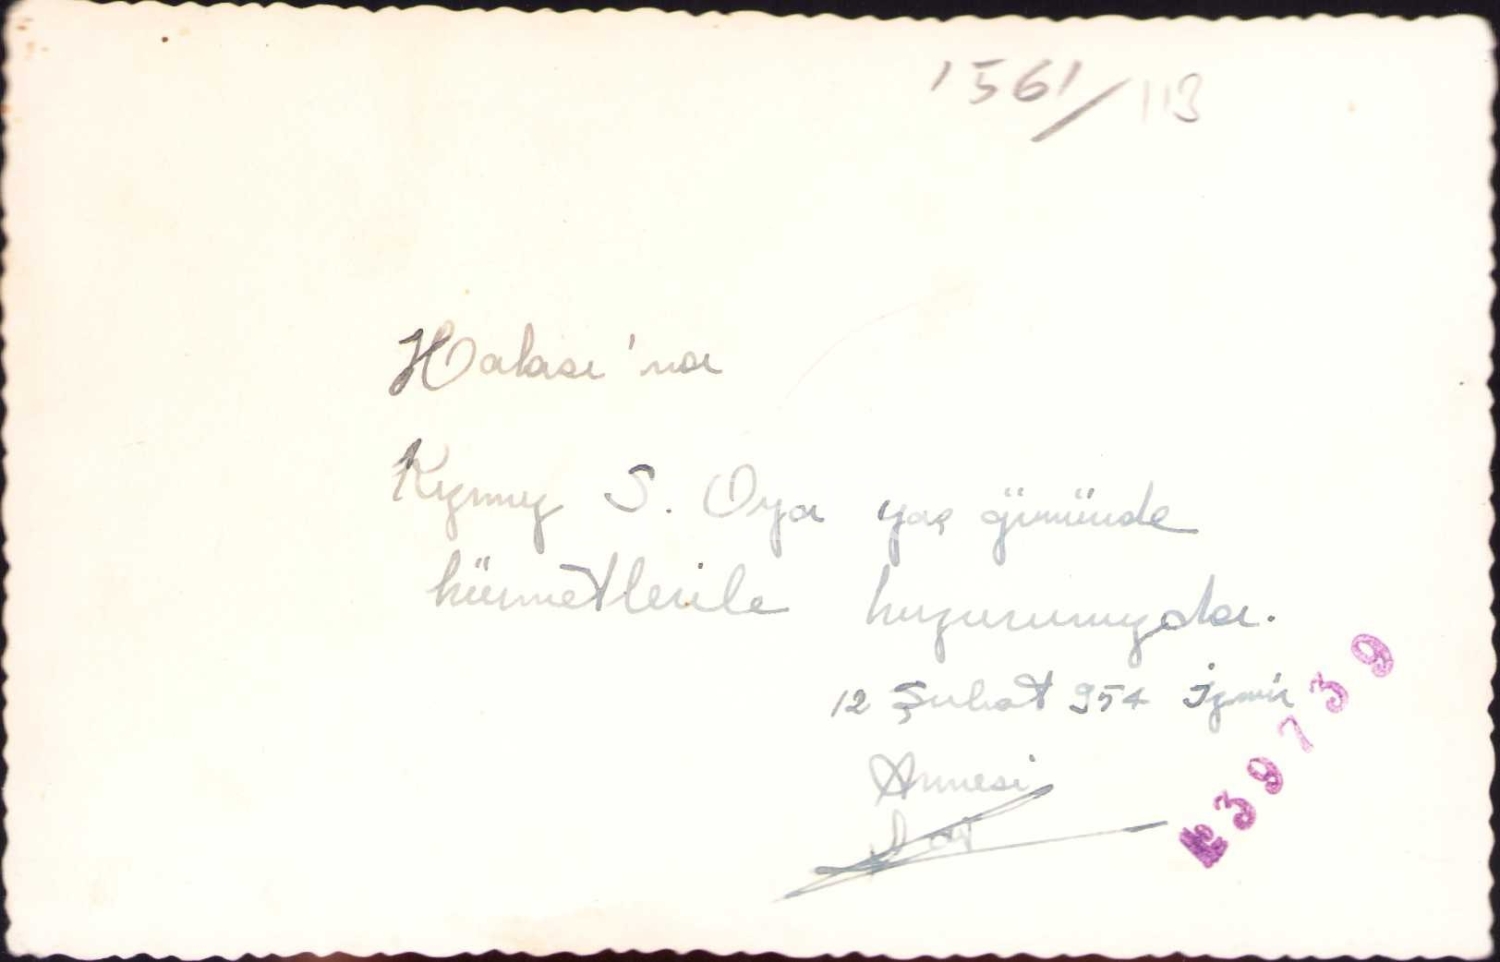 1561/113
Halası'na
Kızınız S. Oya yaş gününde
hürmetlerile huzurunuzda.
12 Şubat 954 İzmir
Annesi
№ 39739